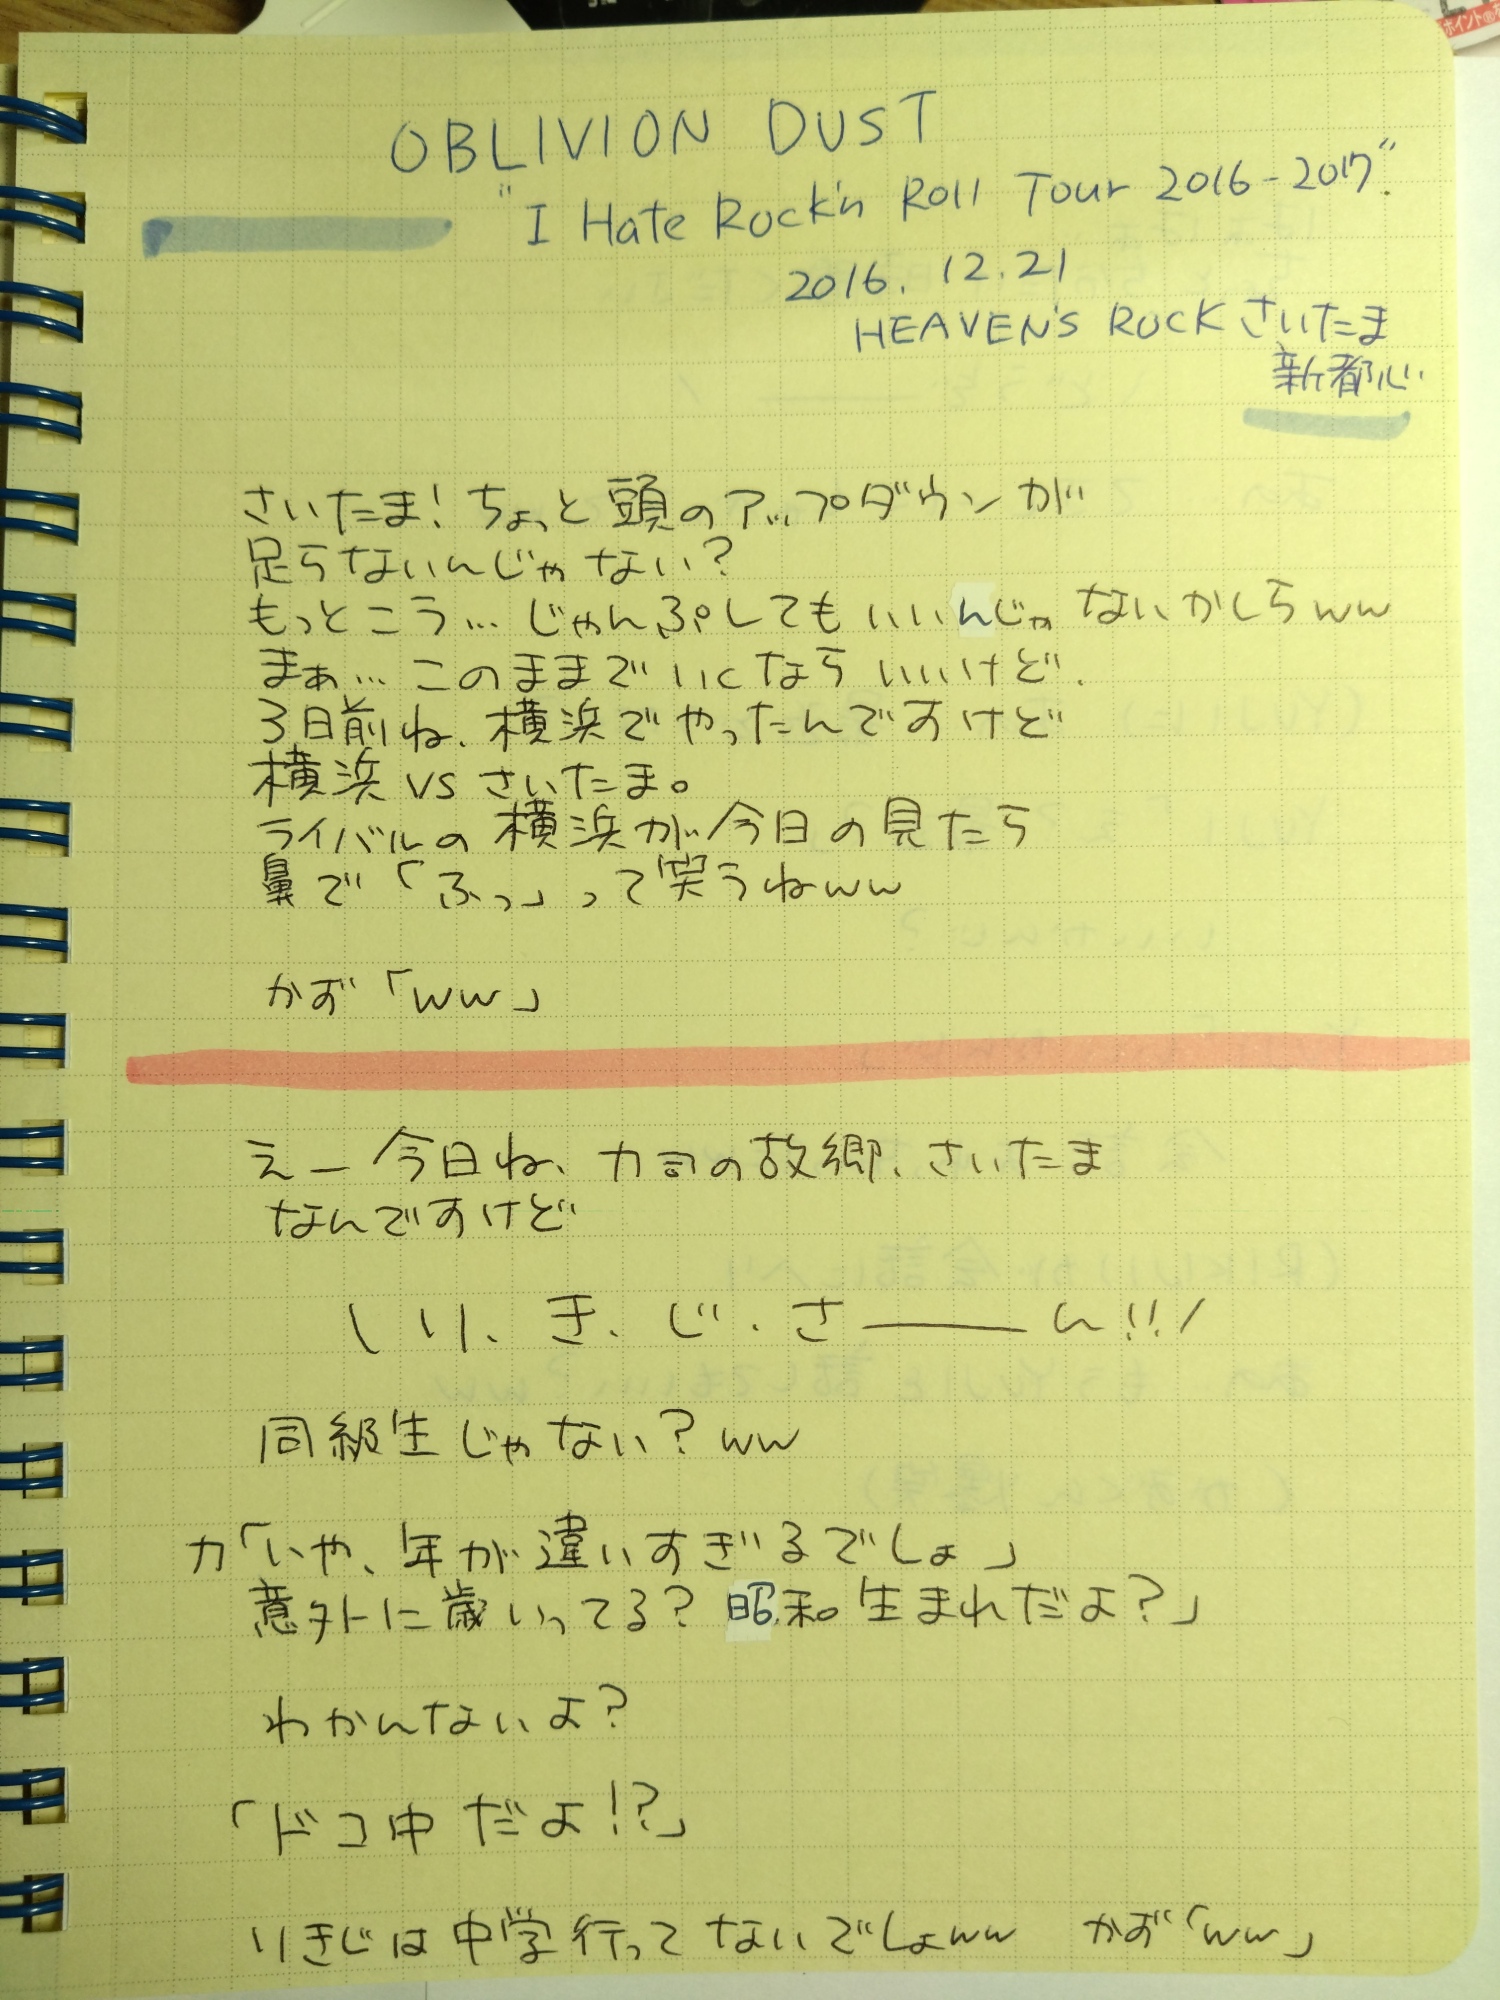 OBLIVION DUST
"I Hate Rock'n Roll Tour 2016-2017"
2016.12.21
HEAVEN'S ROCK さいたま
新都心
さいたま！ちょっと頭のアップダウンが
足らないんじゃない？
もっとこう…じゃんぷしてもいいんじゃないかしらww
まぁ…このままでいくならいいけど、
3日前ね、横浜でやったんですけど
横浜 vs さいたま。
ライバルの横浜が今日の見たら
鼻で「ふっ」って笑うねww
かず「ww」
えー今日ね、力司の故郷、さいたま
なんですけど
\ り、き、じ、さ――ん!! /
同級生じゃない？ww
力「いや、年が違いすぎるでしょ」
意外に歳いってる？昭和生まれだよ？」
わかんないよ？
「ドコ中だよ!?」
りきじは中学行ってないでしょww かず「ww」